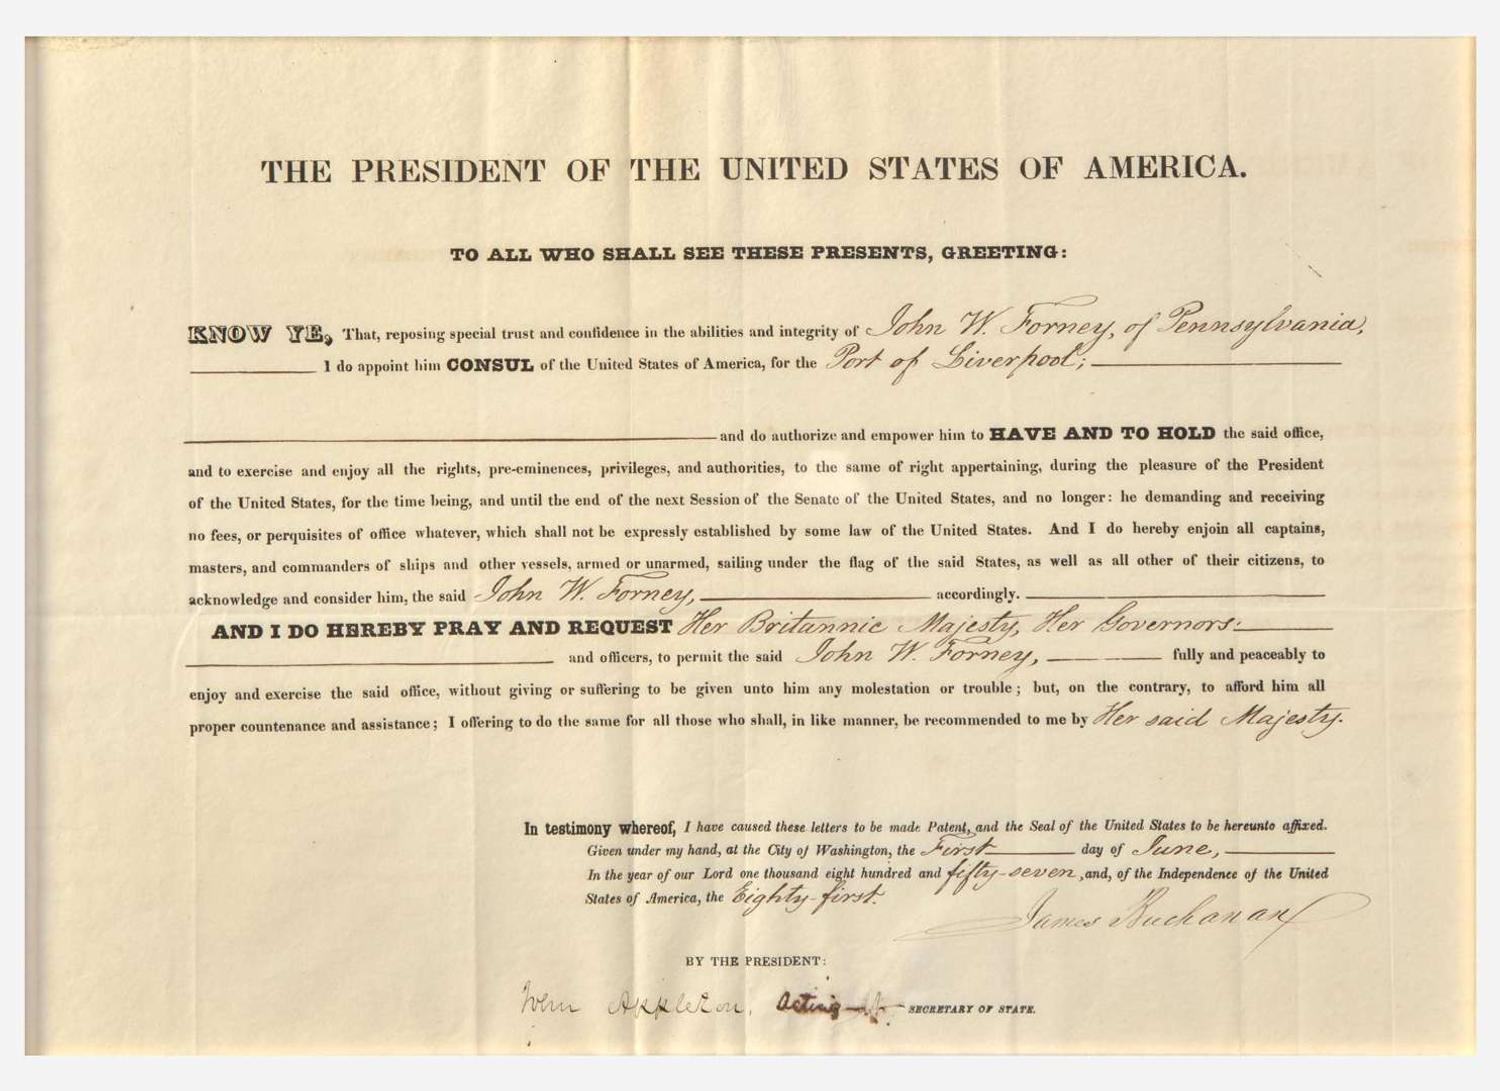 THE PRESIDENT OF THE UNITED STATES OF AMERICA.
TO ALL WHO SHALL SEE THESE PRESENTS, GREETING:
KNOW YE, That, reposing special trust and confidence in the abilities and integrity of John W. Forney, of Pennsylvania,
I do appoint him CONSUL of the United States of America, for the Port of Liverpool;
and do authorize and empower him to HAVE AND TO HOLD the said office,
and to exercise and enjoy all the rights, pre-eminences, privileges, and authorities, to the same of right appertaining, during the pleasure of the President
of the United States, for the time being, and until the end of the next Session of the Senate of the United States, and no longer: he demanding and receiving
no fees, or perquisites of office whatever, which shall not be expressly established by some law of the United States. And I do hereby enjoin all captains,
masters, and commanders of ships and other vessels, armed or unarmed, sailing under the flag of the said States, as well as all other of their citizens, to
acknowledge and consider him, the said John W. Forney, accordingly.
AND I DO HEREBY PRAY AND REQUEST Her Britannic Majesty, Her Governors
and officers, to permit the said John W. Forney, fully and peaceably to
enjoy and exercise the said office, without giving or suffering to be given unto him any molestation or trouble; but, on the contrary, to afford him all
proper countenance and assistance; I offering to do the same for all those who shall, in like manner, be recommended to me by Her said Majesty.
In testimony whereof, I have caused these letters to be made Patent, and the Seal of the United States to be hereunto affixed.
Given under my hand, at the City of Washington, the First day of June,
In the year of our Lord one thousand eight hundred and fifty-seven, and, of the Independence of the United
States of America, the Eighty-first.
James Buchanan
BY THE PRESIDENT:
Appleton, Acting SECRETARY OF STATE.